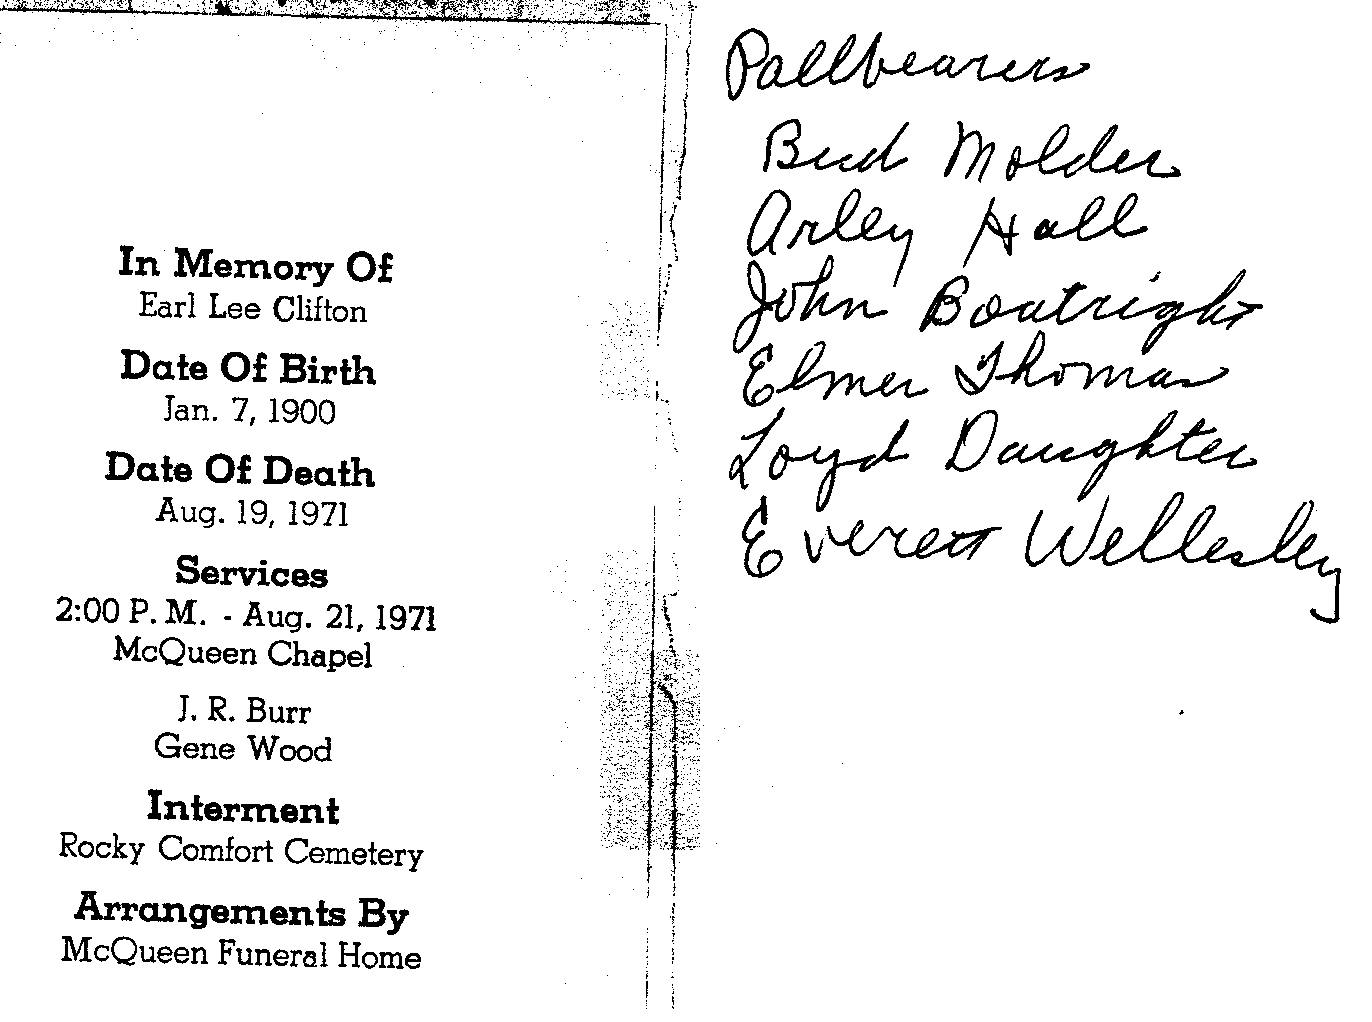 In Memory Of
Earl Lee Clifton
Date Of Birth
Jan. 7, 1900
Date Of Death
Aug. 19, 1971
Services
2:00 P. M. - Aug. 21, 1971
McQueen Chapel
J. R. Burr
Gene Wood
Interment
Rocky Comfort Cemetery
Arrangements By
McQueen Funeral Home
Pallbearers
Bud Molder
Arley Hall
John Boatright
Elmer Thomas
Loyd Daughter
Everett Wellesley